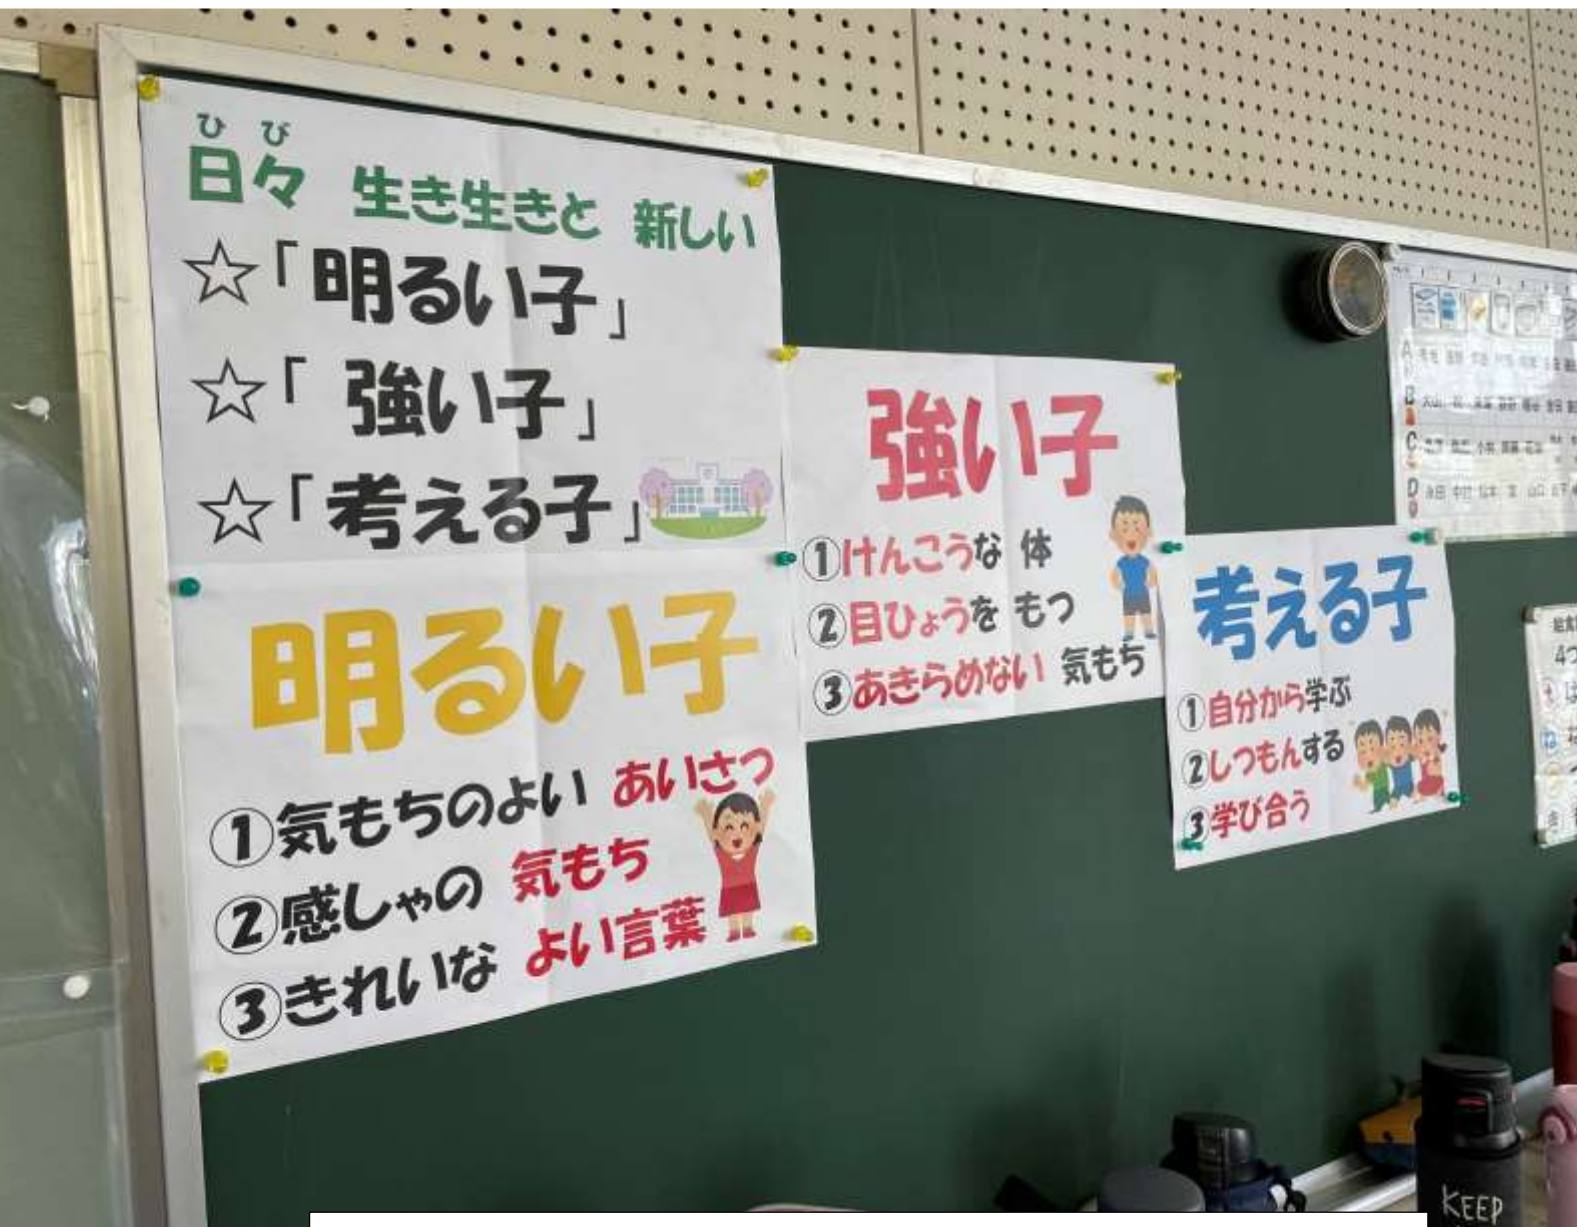 ひび
日々 生き生きと 新しい
☆「明るい子」
☆「強い子」
☆「考える子」
明るい子
①気もちのよい あいさつ
②感しゃの 気もち
③きれいな よい言葉
強い子
①けんこうな 体
②目ひょうを もつ
③あきらめない 気もち
考える子
①自分から学ぶ
②しつもんする
③学び合う
A
B
C
小林
D
永田 中村 山口
4つ
は
KEEP